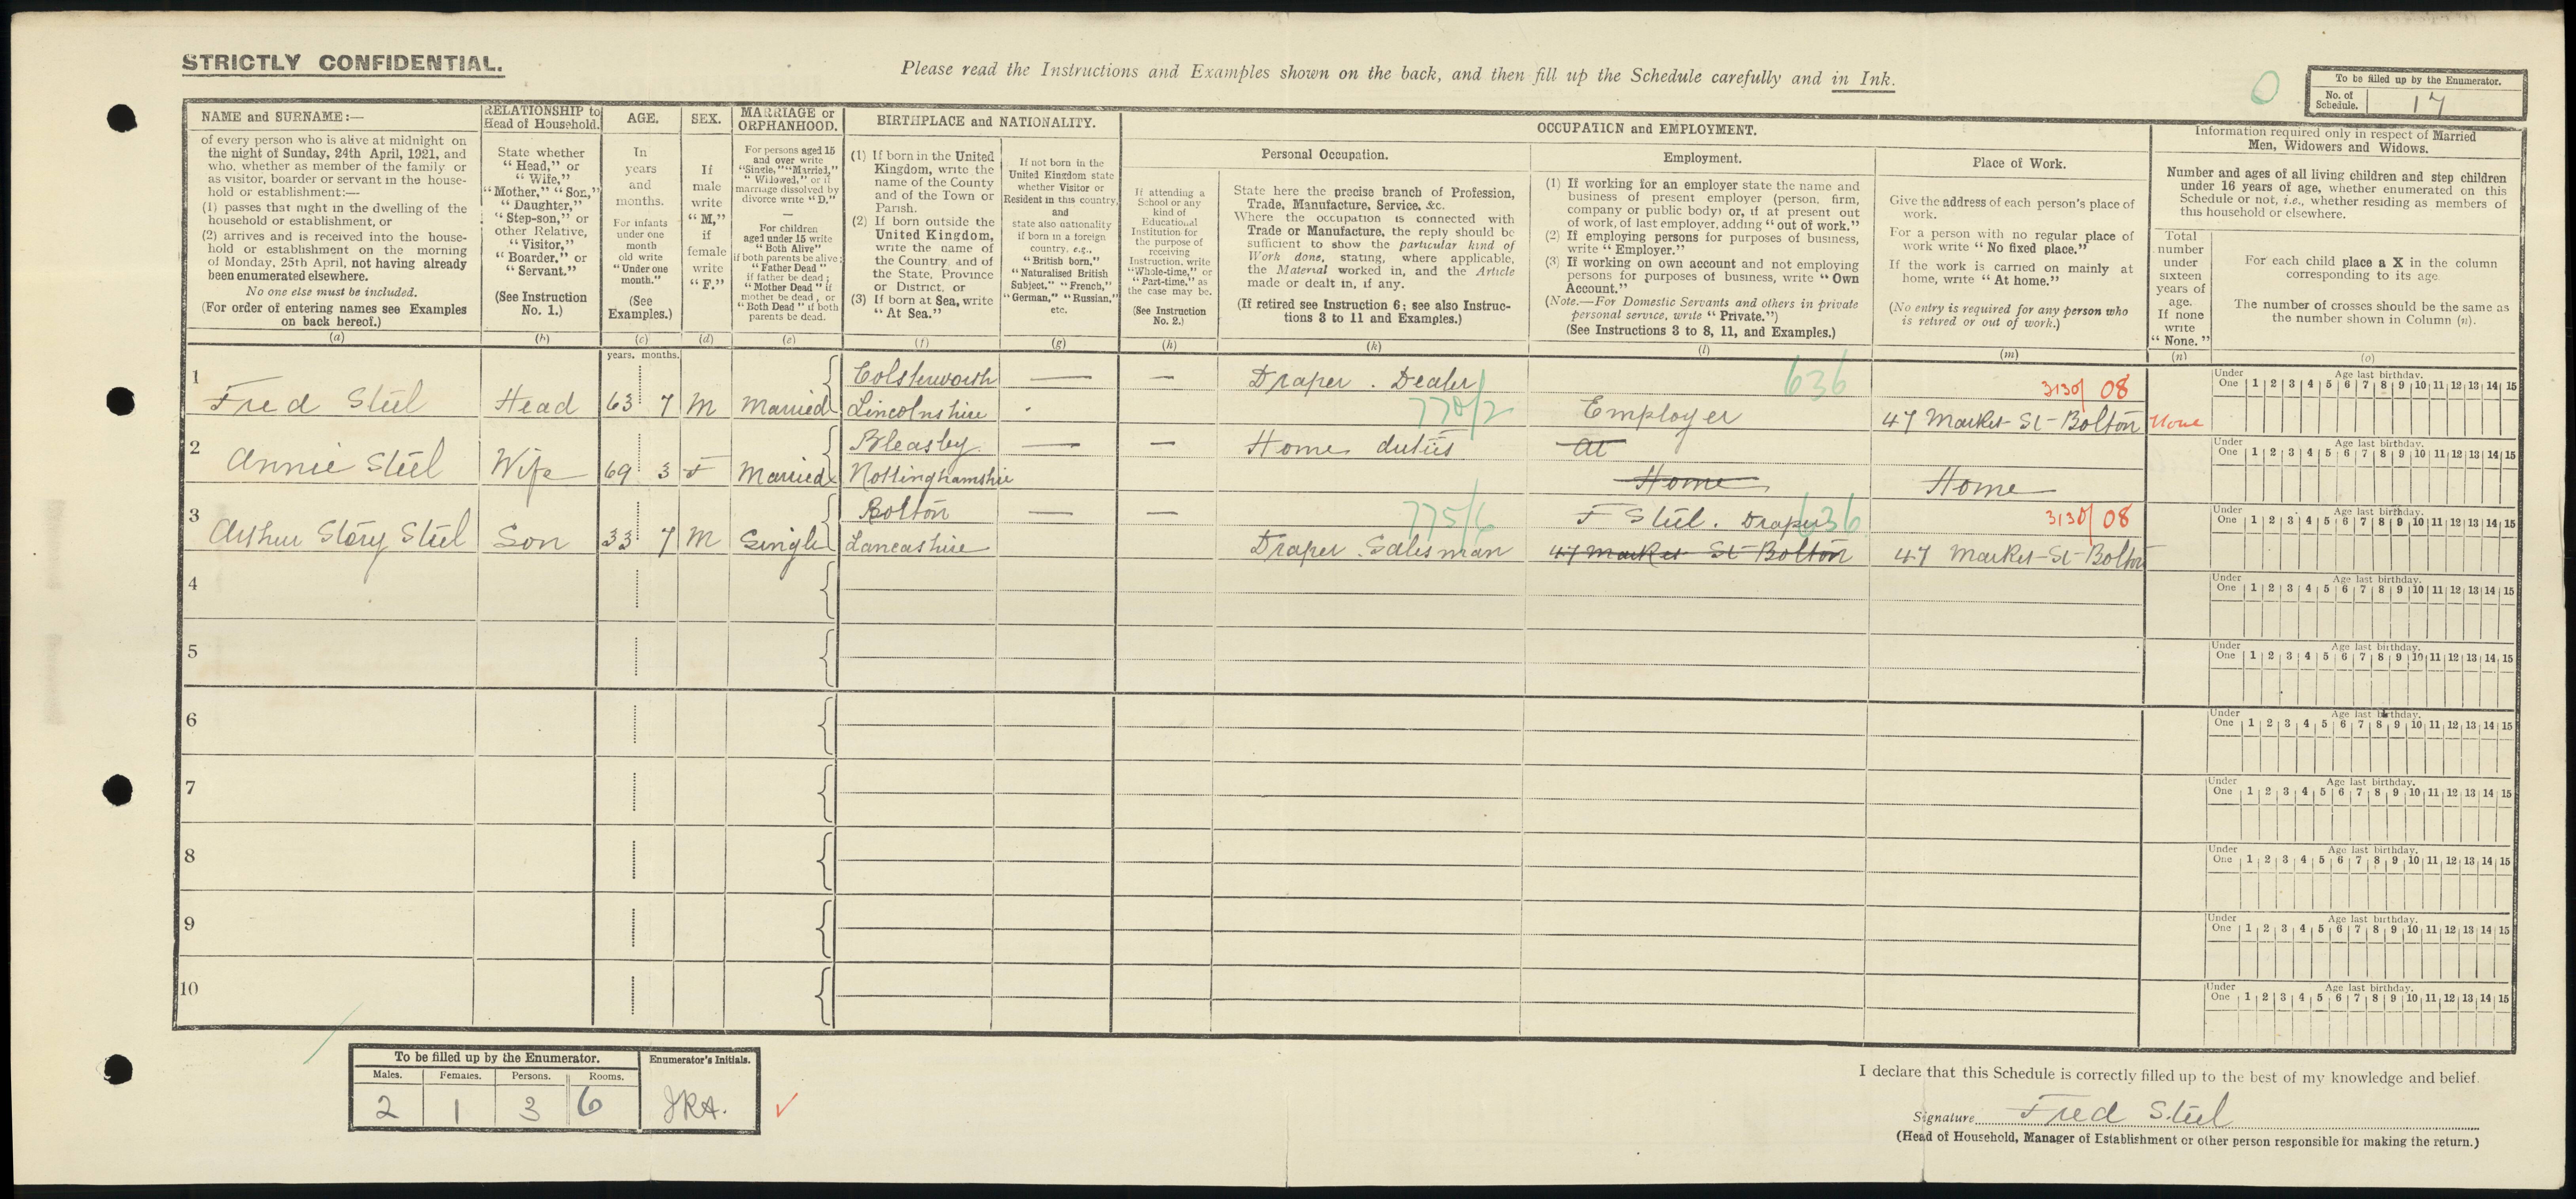 STRICTLY CONFIDENTIAL.
Please read the Instructions and Examples shown on the back, and then fill up the Schedule carefully and in Ink.
0
To be filled up by the Enumerator.
No. of Schedule. 17
NAME and SURNAME:—
of every person who is alive at midnight on
the night of Sunday, 24th April, 1921, and
who, whether as member of the family or
as visitor, boarder or servant in the house-
hold or establishment:—
(1) passes that night in the dwelling of the
household or establishment, or
(2) arrives and is received into the house-
hold or establishment on the morning
of Monday, 25th April, not having already
been enumerated elsewhere.
No one else must be included.
(For order of entering names see Examples
on back hereof.)
(a)
RELATIONSHIP to
Head of Household.
State whether
"Head," or
"Wife,"
"Mother," "Son,"
"Daughter,"
"Step-son," or
other Relative,
"Visitor,"
"Boarder," or
"Servant."
(See Instruction
No. 1.)
(b)
AGE.
In
years
and
months.
For infants
under one
month
old write
"Under one
month."
(See
Examples.)
(c)
SEX.
If
male
write
"M,"
if
female
write
"F."
(d)
MARRIAGE or
ORPHANHOOD.
For persons aged 15
and over write
"Single," "Married,"
"Widowed," or if
marriage dissolved by
divorce write "D."
—
For children
aged under 15 write
"Both Alive"
if both parents be alive;
"Father Dead"
if father be dead;
"Mother Dead" if
mother be dead, or
"Both Dead" if both
parents be dead.
(e)
BIRTHPLACE and NATIONALITY.
(1) If born in the United
Kingdom, write the
name of the County
and of the Town or
Parish.
(2) If born outside the
United Kingdom,
write the name of
the Country, and of
the State, Province
or District, or
(3) If born at Sea, write
"At Sea."
(f)
If not born in the
United Kingdom state
whether Visitor or
Resident in this country,
and
state also nationality
if born in a foreign
country, e.g.,
"British born,"
"Naturalised British
Subject," "French,"
"German," "Russian,"
etc.
(g)
OCCUPATION and EMPLOYMENT.
Personal Occupation.
If attending a
School or any
kind of
Educational
Institution for
the purpose of
receiving
Instruction, write
"Whole-time," or
"Part-time," as
the case may be.
(See Instruction
No. 2.)
(h)
State here the precise branch of Profession,
Trade, Manufacture, Service, &c.
Where the occupation is connected with
Trade or Manufacture, the reply should be
sufficient to show the particular kind of
Work done, stating, where applicable,
the Material worked in, and the Article
made or dealt in, if any.
(If retired see Instruction 6; see also Instruc-
tions 3 to 11 and Examples.)
(k)
Employment.
(1) If working for an employer state the name and
business of present employer (person, firm,
company or public body) or, if at present out
of work, of last employer, adding "out of work."
(2) If employing persons for purposes of business,
write "Employer."
(3) If working on own account and not employing
persons for purposes of business, write "Own
Account."
(Note.—For Domestic Servants and others in private
personal service, write "Private.")
(See Instructions 3 to 8, 11, and Examples.)
(l)
Place of Work.
Give the address of each person's place of
work.
For a person with no regular place of
work write "No fixed place."
If the work is carried on mainly at
home, write "At home."
(No entry is required for any person who
is retired or out of work.)
(m)
Information required only in respect of Married
Men, Widowers and Widows.
Number and ages of all living children and step children
under 16 years of age, whether enumerated on this
Schedule or not, i.e., whether residing as members of
this household or elsewhere.
Total
number
under
sixteen
years of
age.
If none
write
"None."
(n)
For each child place a X in the column
corresponding to its age
The number of crosses should be the same as
the number shown in Column (n).
(o)
years. months.
Under One Age last birthday. 1 2 3 4 5 6 7 8 9 10 11 12 13 14 15
1 Colsterworth — — Draper . Dealer 636 3130/ 08
Fred Steel Head 63 7 M Married Lincolnshire 770/2 Employer 47 Market St Bolton None
Under One Age last birthday. 1 2 3 4 5 6 7 8 9 10 11 12 13 14 15
2 Bleasby — — Home duties At
Annie Steel Wife 69 3 F Married Nottinghamshire Home Home
Under One Age last birthday. 1 2 3 4 5 6 7 8 9 10 11 12 13 14 15
3 Bolton — — 775/6 F Steel . Draper 636 3130/ 08
Arthur Story Steel Son 33 7 M Single Lancashire Draper Salesman 47 Market St Bolton 47 Market St Bolton
4 Under One Age last birthday. 1 2 3 4 5 6 7 8 9 10 11 12 13 14 15
5 Under One Age last birthday. 1 2 3 4 5 6 7 8 9 10 11 12 13 14 15
6 Under One Age last birthday. 1 2 3 4 5 6 7 8 9 10 11 12 13 14 15
7 Under One Age last birthday. 1 2 3 4 5 6 7 8 9 10 11 12 13 14 15
8 Under One Age last birthday. 1 2 3 4 5 6 7 8 9 10 11 12 13 14 15
9 Under One Age last birthday. 1 2 3 4 5 6 7 8 9 10 11 12 13 14 15
10 Under One Age last birthday. 1 2 3 4 5 6 7 8 9 10 11 12 13 14 15
To be filled up by the Enumerator. Enumerator's Initials.
Males. Females. Persons. Rooms.
2 1 3 6 JRA.
I declare that this Schedule is correctly filled up to the best of my knowledge and belief.
Signature Fred Steel
(Head of Household, Manager of Establishment or other person responsible for making the return.)